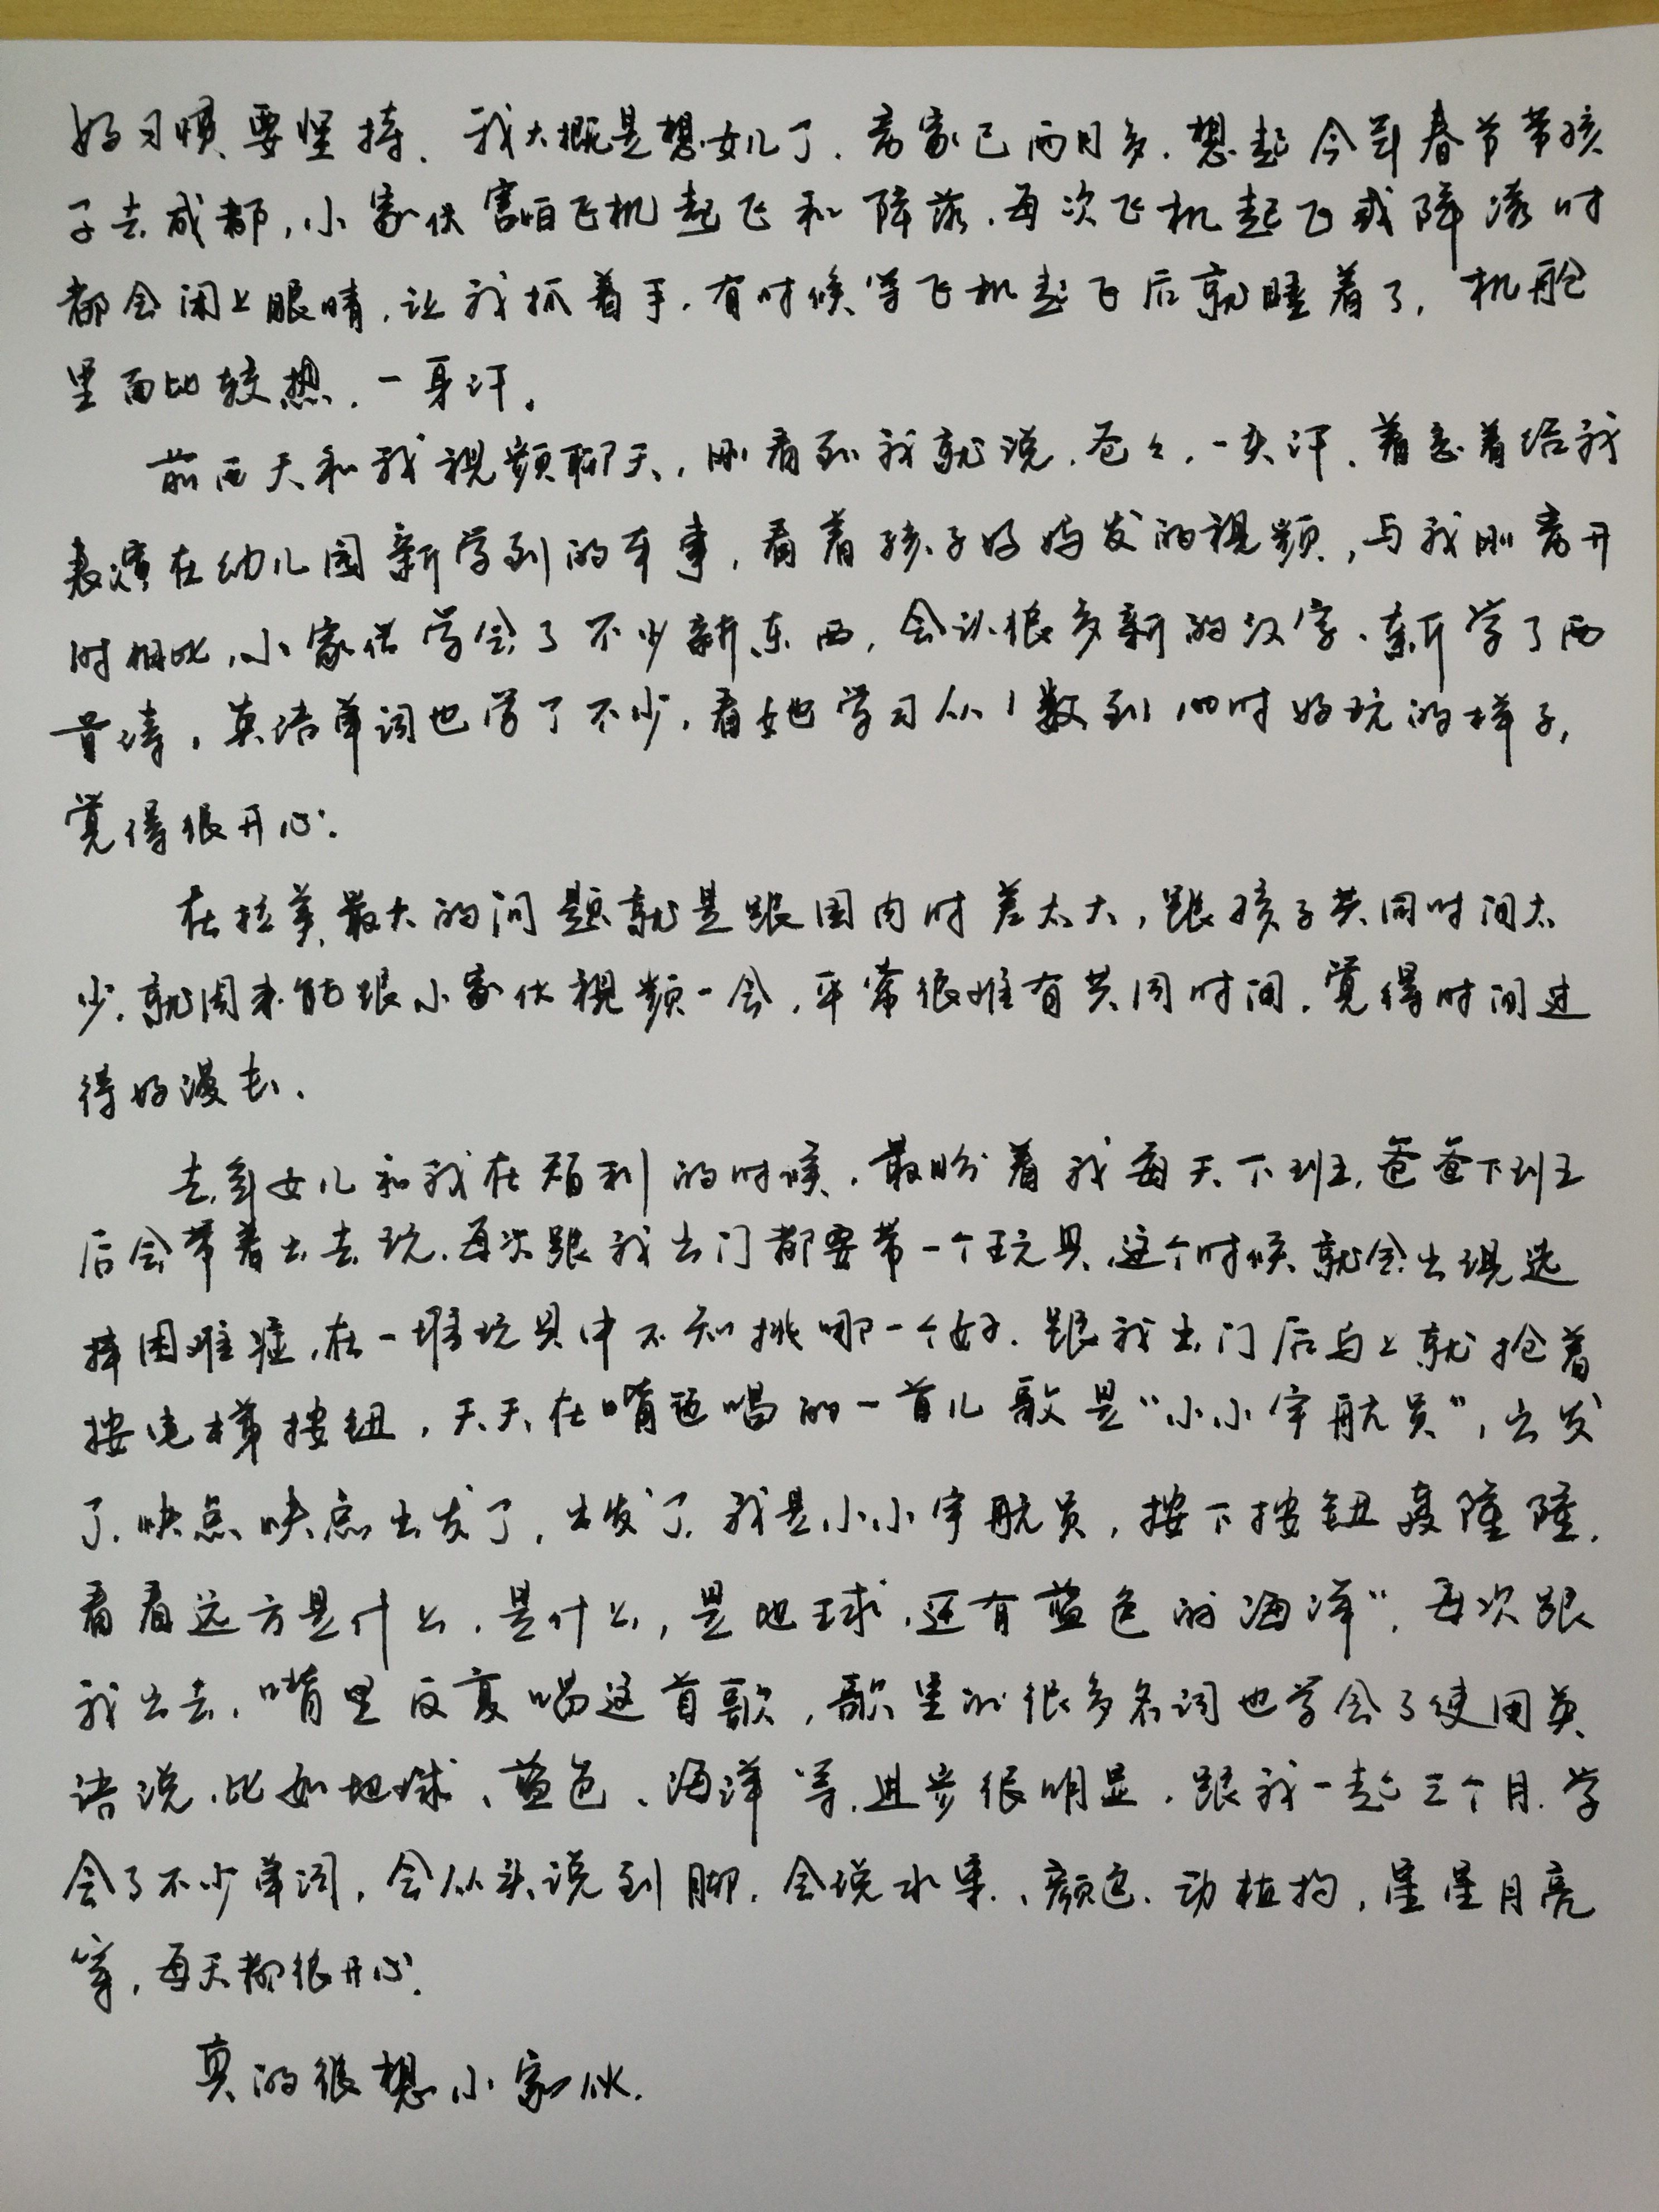 好习惯要坚持、我大概是想女儿了.离家已两月多.想起今年春节带孩
子去成都,小家伙害怕飞机起飞和降落.每次飞机起飞或降落时
都会闭上眼睛,让我抓着手.有时候等飞机起飞后就睡着了,机舱
里面比较热.一身汗。
前两天和我视频聊天,刚看到我就说.爸々,一头汗、着急着给我
表演在幼儿园新学到的本事,看着孩子妈妈发的视频,与我刚离开
时相比,小家伙学会了不少新东西,会认很多新的汉字、新学了两
首诗,英语单词也学了不少,看她学习从1数到100时好玩的样子,
觉得很开心.
在拉美最大的问题就是跟国内时差太大,跟孩子共同时间太
少.就周末能跟小家伙视频一会,平常很难有共同时间.觉得时间过
得好漫长、
去年女儿和我在智利的时候.最盼着我每天下班.爸爸下班
后会带着出去玩.每次跟我出门都要带一个玩具.这个时候就会出现选
择困难症.在一堆玩具中不知挑哪一个好.跟我出门后马上就抢着
按电梯按钮,天天在嘴边唱的一首儿歌是“小小宇航员”,出发
了.快点快点出发了,出发了.我是小小宇航员,按下按钮轰隆隆.
看看远方是什么.是什么,是地球.还有蓝色的海洋”.每次跟
我出去.嘴里反复唱这首歌,歌里的很多名词也学会了使用英
语说.比如地球、蓝色、海洋等.进步很明显.跟我一起三个月.学
会了不少单词,会从头说到脚.会说水果、颜色、动植物,星星月亮
等,每天都很开心.
真的很想小家伙.